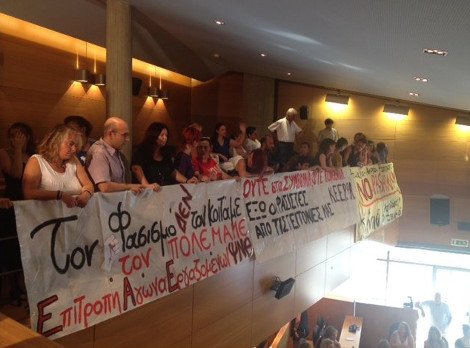 Τον φασισμο ΔΕΝ τον κοιταμε
τον ΠΟΛΕΜΑΜΕ
Επιτροπη Αγωνα Εργαζομενων
ΟΥΤΕ στα ΣΥΜΒΟΥΛΙΑ ΟΥΤΕ
ΕΞΩ οι ΦΑΣΙΣΤΕΣ
ΑΠΟ ΤΙΣ ΓΕΙΤΟΝΙΕΣ ΜΑΣ
ΚΕΕΡΦΑ
NO